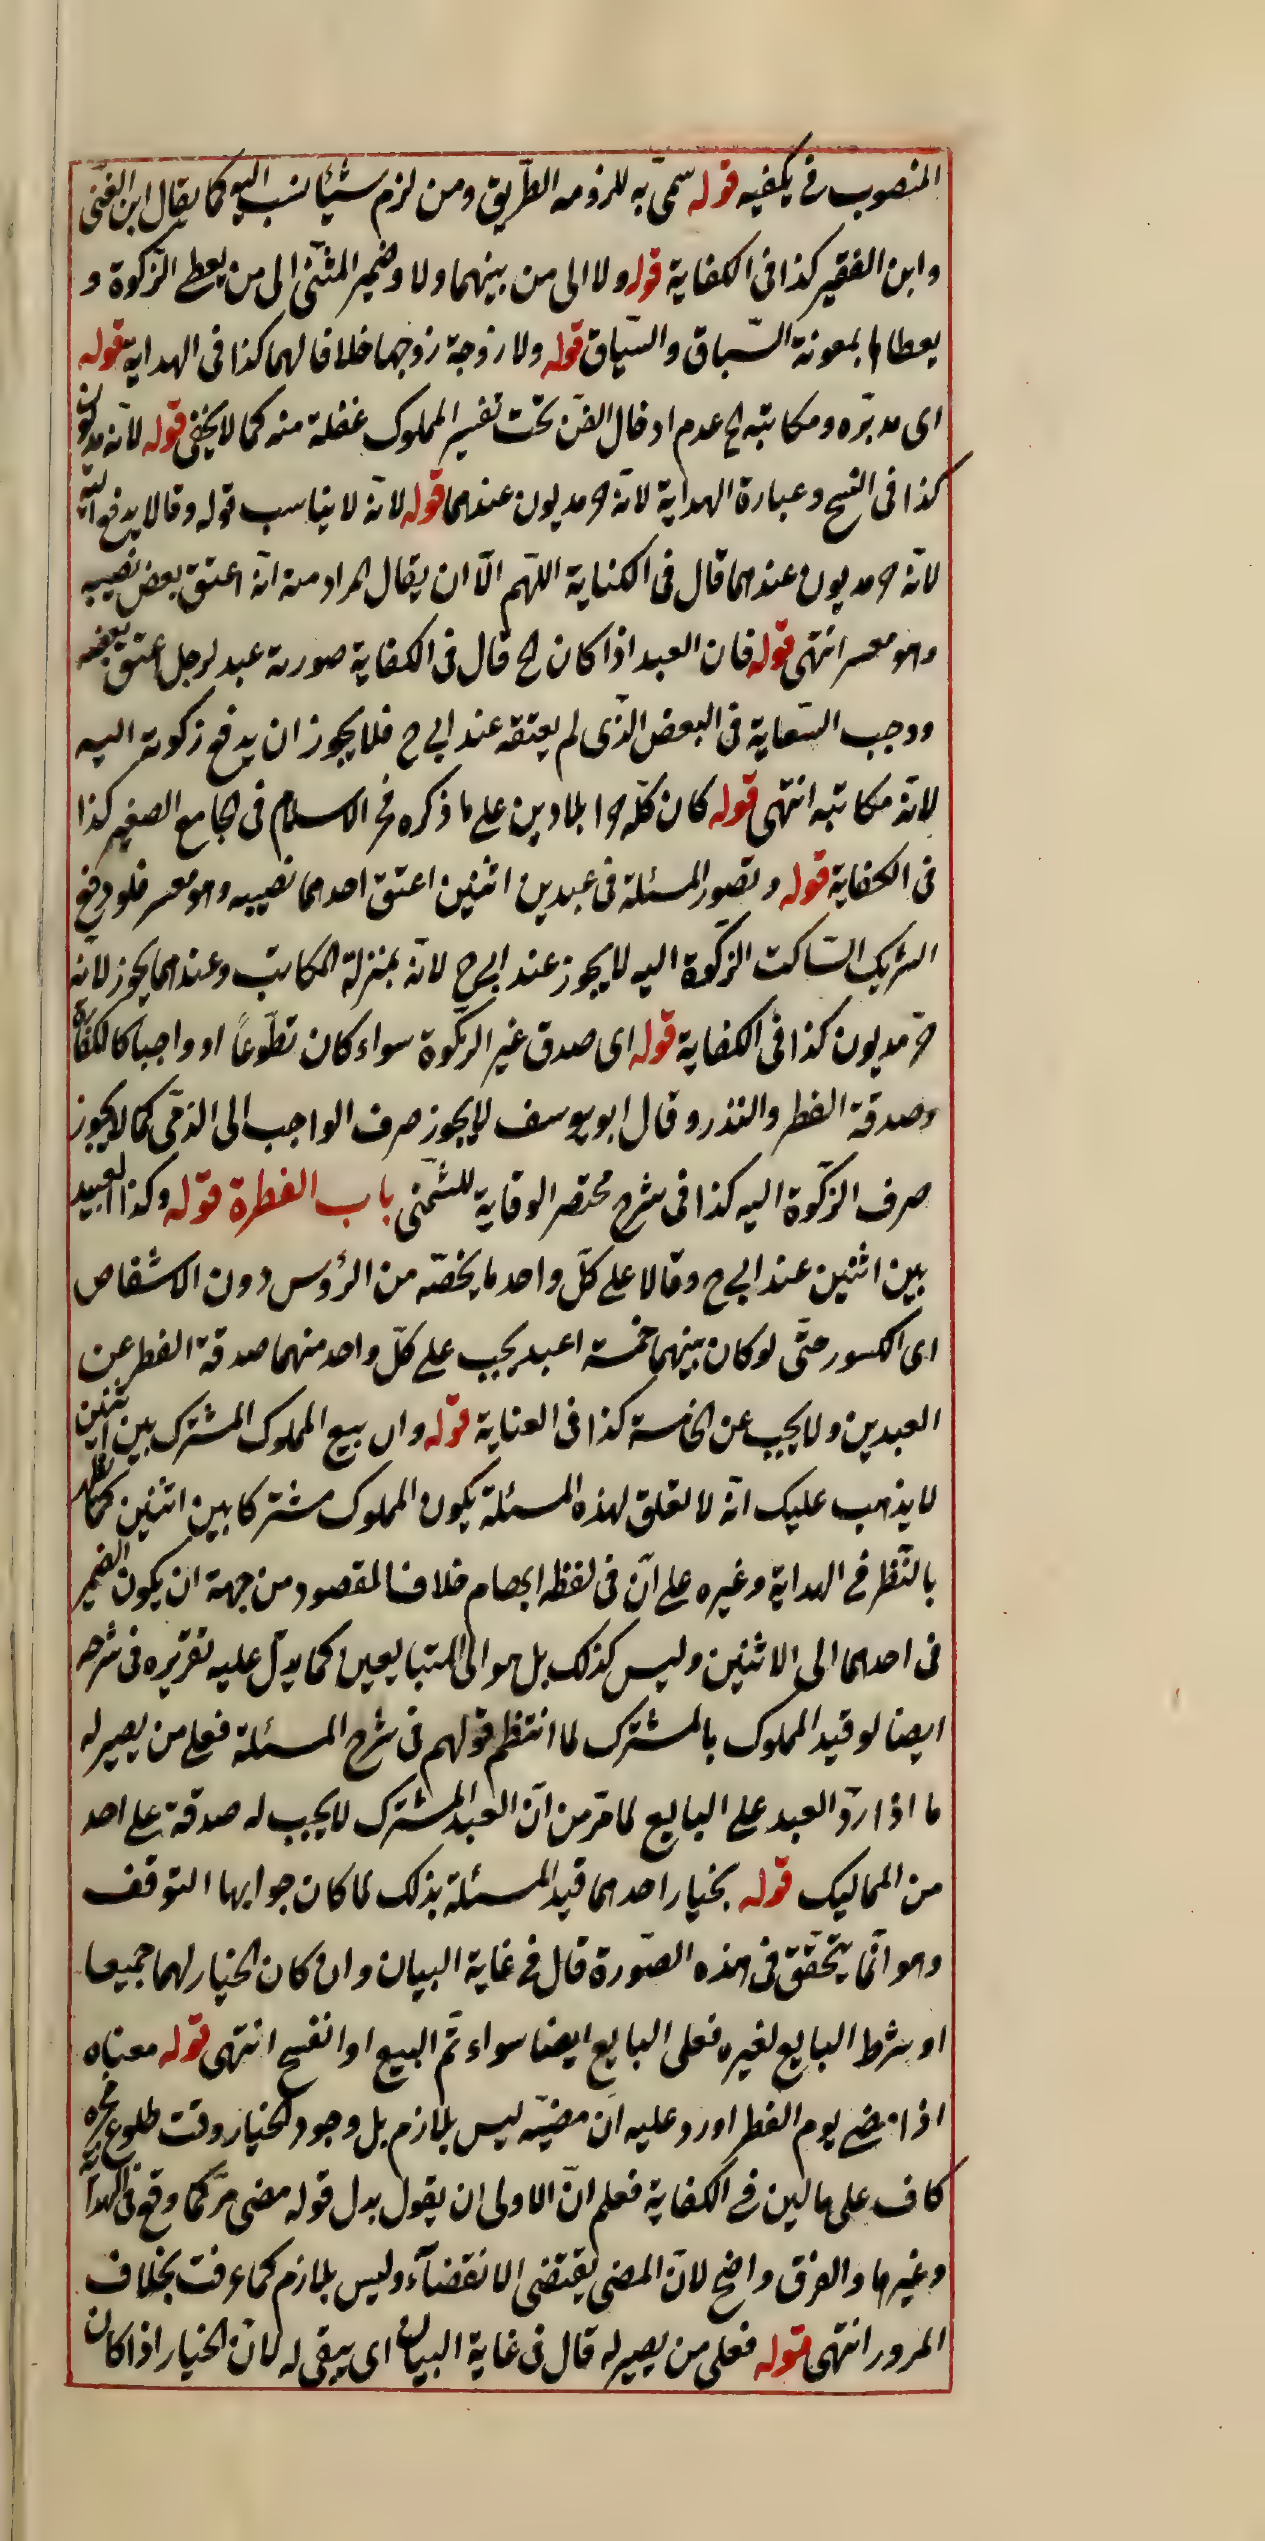 المنصوب فى يكفيه قوله سمّى به للزومه الطّريق ومن لزم شيئا نسب اليه كما يقال ابن الغنىّ
وابن الفقير كذا فى الكفاية قوله ولا الى من بينهما ولا وضمير المثنّى الى من يعطى الزّكوة و
يعطاها بمعونة السّباق والسّياق قوله ولا زوجة زوجها خلافا لهما كذا فى الهداية قوله
اى مدبّره ومكاتبه الخ عدم ادخال القنّ تحت تفسير المملوك غفلة منه كما لا يخفى قوله لانّه مديون
كذا فى النسخ وعبارة الهداية لانّه حر مديون عندهما قوله لانّه لا يناسب قوله وقالا يدفع اليه
لانّه حر مديون عندهما قال فى الكفاية اللّهم الّا ان يقال المراد منه انّه اعتق بعض نصيبه
وهو معسر انتهى قوله فان العبد اذا كان الخ قال فى الكفاية صورته عبد لرجل اعتق بعضه
ووجب السّعاية فى البعض الّذى لم يعتقه عند ابى ح فلا يجوز ان يدفع زكوته اليه
لانّه مكاتبه انتهى قوله كان كلّه حرا بلا دين على ما ذكره فخر الاسلام فى الجامع الصغير كذا
فى الكفاية قوله وتصور المسئلة فى عبدين اثنين اعتق احدهما نصيبه وهو معسر فلو دفع
الشريك السّاكت الزكوة اليه لا يجوز عند ابى ح لانّه بمنزلة المكاتب وعندهما يجوز لانّه
حرّ مديون كذا فى الكفاية قوله اى صدق غير الزّكوة سواء كان تطوّعاً او واجبا كالكفارة
وصدقة الفطر والنذر وقال ابو يوسف لا يجوز صرف الواجب الى الذمّى كما لا يجوز
صرف الزّكوة اليه كذا فى شرح مختصر الوقاية للشّمنى باب الفطرة قوله وكذا العبيد
بين اثنين عند ابى ح وقالا على كلّ واحد ما يخصّه من الرؤس دون الاشقاص
اى الكسور حتّى لو كان بينهما خمسة اعبد يجب على كلّ واحد منهما صدقة الفطر عن
العبدين ولا يجب عن الخامسة كذا فى العناية قوله وان بيع المملوك المشترك بين اثنين
لا يذهب عليك انّه لا تعلق لهذه المسئلة بكون المملوك مشتركا بين اثنين كما يظهر
بالنّظر فى الهداية وغيره على انّ فى لفظه ايهام خلاف المقصود من جهة ان يكون الضمير
فى احدهما الى الاثنين وليس كذلك بل هو الى المتبايعين كما يدلّ عليه تقريره فى شرحه
ايضا لو قيد المملوك بالمشترك لما انتظم قولهم فى شرح المسئلة فعلى من يصير له
ما اذا ردّ العبد على البايع لما مرّ من انّ العبد المشترك لا يجب له صدقة على احد
من المماليك قوله بخيار احدهما قيد المسئلة بذلك لما كان جوابها التوقف
وهو انّما يتحقّق فى هذه الصّورة قال فى غاية البيان وان كان الخيار لهما جميعا
او شرط البايع لغيره فعلى البايع ايضا سواء تمّ البيع او انفسخ انتهى قوله معناه
اذا مضى يوم الفطر اورد عليه انّ مضيّه ليس بلازم بل وجود الخيار وقت طلوع فجره
كاف على ما بين فى الكفاية فعلم انّ الاولى ان يقول بدل قوله مضى مرّ كما وقع فى الهداية
وغيرها والفرق واضح لانّ المضى يقتضى الانقضآء وليس بلازم كما عرفت بخلاف
المرور انتهى قوله فعلى من يصير له قال فى غاية البيان اى يبقى له لانّ الخيار اذا كان